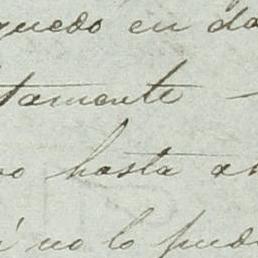 quedo en da
tamente
no hasta a
i no lo pud